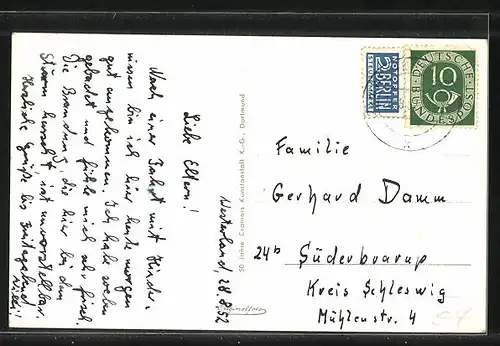 Westerland, 28.8.52
Liebe Eltern!
Nach einer Fahrt mit Hinder-
nissen bin ich hier heute morgen
gut angekommen. Ich habe schon
gebadet und fühle mich sehr frisch.
Die Brandung, die hier bei dem
Sturm herrscht, ist unvorstellbar.
Herzliche Grüße bis Freitagabend
Willi!
50 Jahre Cramers Kunstanstalt K.-G., Dortmund
NOTOPFER
2 BERLIN
STEUERMARKE
DEUTSCHE BUNDESPOST
10
Familie
Gerhard Damm
24b Süderbrarup
Kreis Schleswig
Mühlenstr. 4